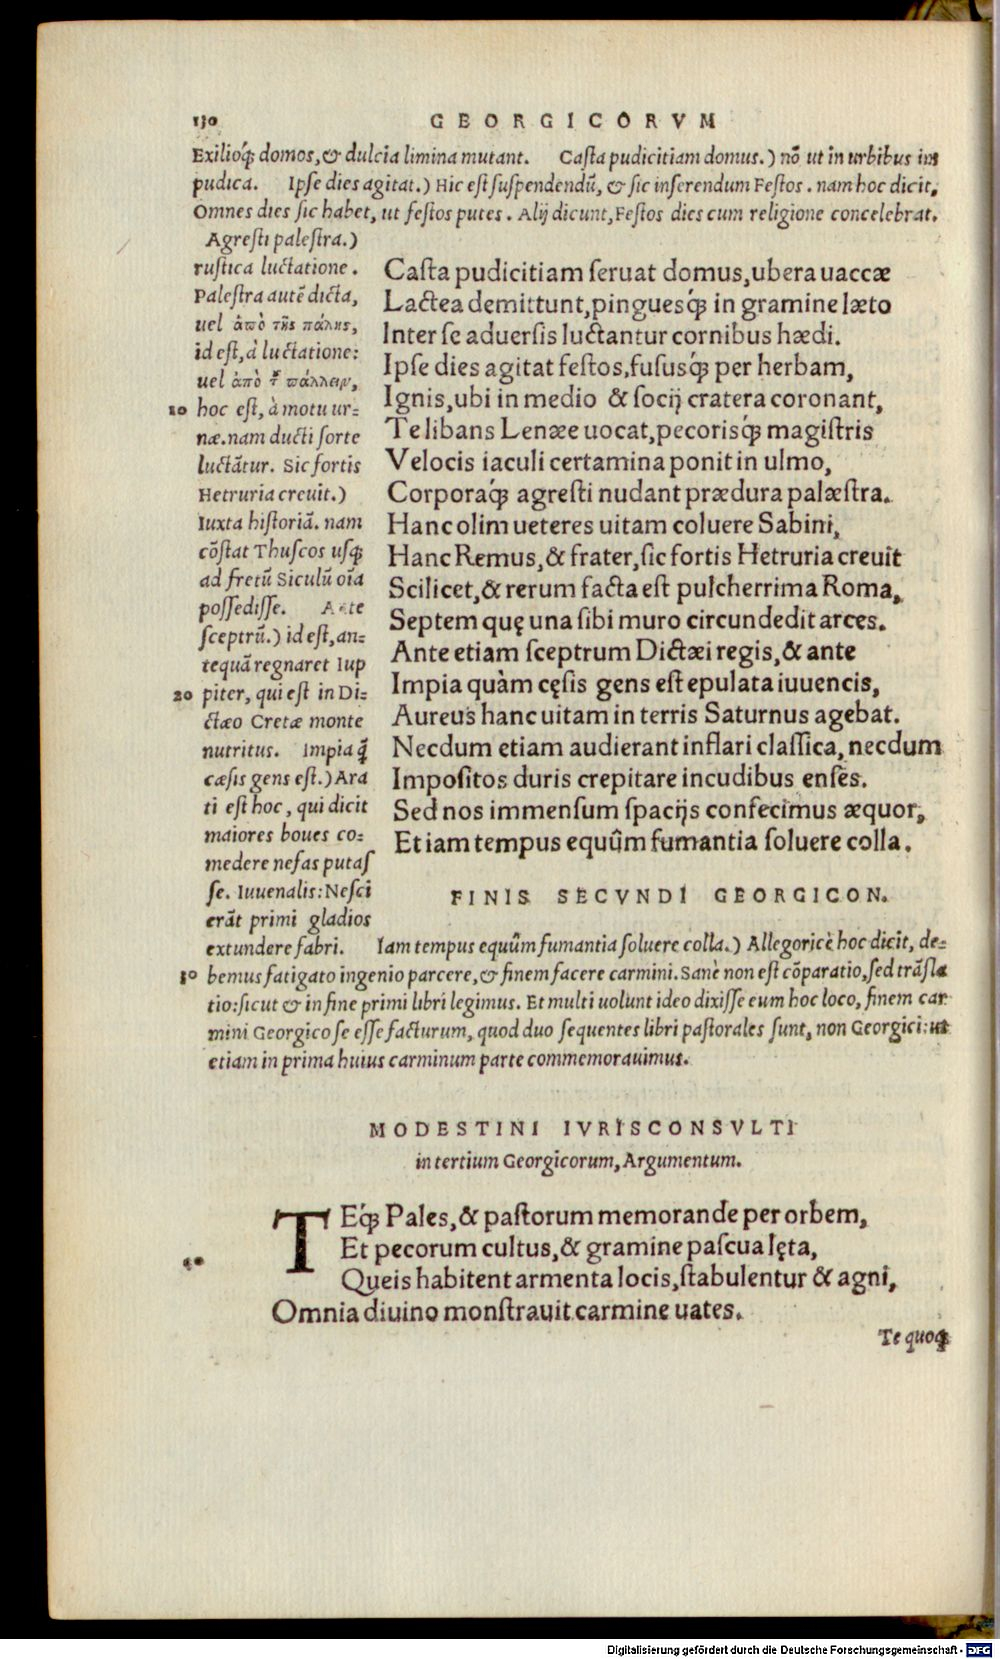 130 GEORGICORVM
Exilioq́; domos, & dulcia limina mutant. Casta pudicitiam domus.) nõ ut in urbibus im
pudica. Ipse dies agitat.) Hic est suspendendũ, & sic inferendum Festos. nam hoc dicit,
Omnes dies sic habet, ut festos putes. Alij dicunt, Festos dies cum religione concelebrat.
Agresti palestra.)
rustica luctatione.
Palestra autẽ dicta,
uel ἀπὸ τῆς πάλης,
id est, à luctatione:
uel ἀπὸ τ͂ πάλλειν,
10 hoc est, à motu ur=
næ. nam ducti sorte
luctãtur. Sic fortis
Hetruria creuit.)
Iuxta historiã. nam
cõstat Thuscos usq́;
ad fretũ Siculũ oĩa
possedisse. Ante
sceptrũ.) id est, an=
tequã regnaret Iup
20 piter, qui est in Di=
ctæo Cretæ monte
nutritus. Impia q̃
cæsis gens est.) Ara
ti est hoc, qui dicit
maiores boues co=
medere nefas putaſ
se. Iuuenalis: Nesci
erãt primi gladios
extundere fabri.
Casta pudicitiam seruat domus, ubera uaccæ
Lactea demittunt, pinguesq́; in gramine læto
Inter se aduersis luctantur cornibus hædi.
Ipse dies agitat festos, fususq́; per herbam,
Ignis, ubi in medio & socij cratera coronant,
Te libans Lenæe uocat, pecorisq́; magistris
Velocis iaculi certamina ponit in ulmo,
Corporaq́; agresti nudant prædura palæstra.
Hanc olim ueteres uitam coluere Sabini,
Hanc Remus, & frater, sic fortis Hetruria creuit
Scilicet, & rerum facta est pulcherrima Roma,
Septem quę una sibi muro circundedit arces.
Ante etiam sceptrum Dictæi regis, & ante
Impia quàm cęsis gens est epulata iuuencis,
Aureus hanc uitam in terris Saturnus agebat.
Necdum etiam audierant inflari classica, necdum
Impositos duris crepitare incudibus enses.
Sed nos immensum spacijs confecimus æquor,
Et iam tempus equûm fumantia soluere colla.
FINIS SECVNDI GEORGICON.
Iam tempus equûm fumantia soluere colla.) Allegoricè hoc dicit, de=
30 bemus fatigato ingenio parcere, & finem facere carmini. Sanè non est cõparatio, sed trãsla
tio: sicut & in fine primi libri legimus. Et multi uolunt ideo dixisse eum hoc loco, finem car
mini Georgico se esse facturum, quod duo sequentes libri pastorales sunt, non Georgici: ut
etiam in prima huius carminum parte commemorauimus.
MODESTINI IVRISCONSVLTI
in tertium Georgicorum, Argumentum.
TEq́; Pales, & pastorum memorande per orbem,
40 Et pecorum cultus, & gramine pascua lęta,
Queis habitent armenta locis, stabulentur & agni,
Omnia diuino monstrauit carmine uates.
Te quoq;
Digitalisierung gefördert durch die Deutsche Forschungsgemeinschaft - DFG